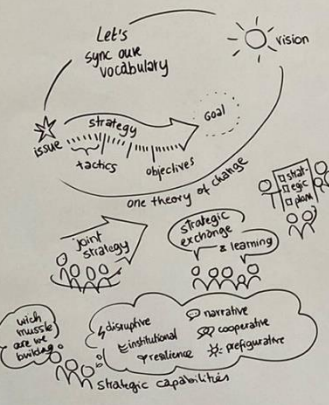 Let's
sync our
vocabulary
vision
issue
strategy
Goal
tactics
objectives
one theory of change
strat-
egic
plans
joint
strategy
strategic
exchange
& learning
wich
mussle
are we
building
disruptive
institutional
resilience
narrative
cooperative
prefigurative
strategic capabilities